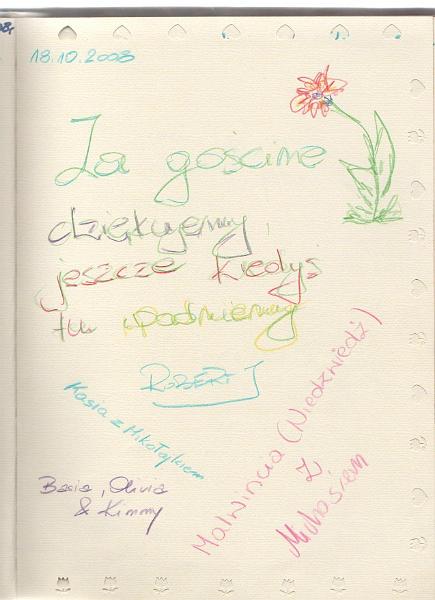 18.10.2008
Za gościnę
dziękujemy,
jeszcze kiedyś
tu wpadniemy
ROBERT J
Kasia z Mikołajkiem
Malwincia (Niedźwiedź)
z
Muhasiem
Basia, Olivia
& Kimmy